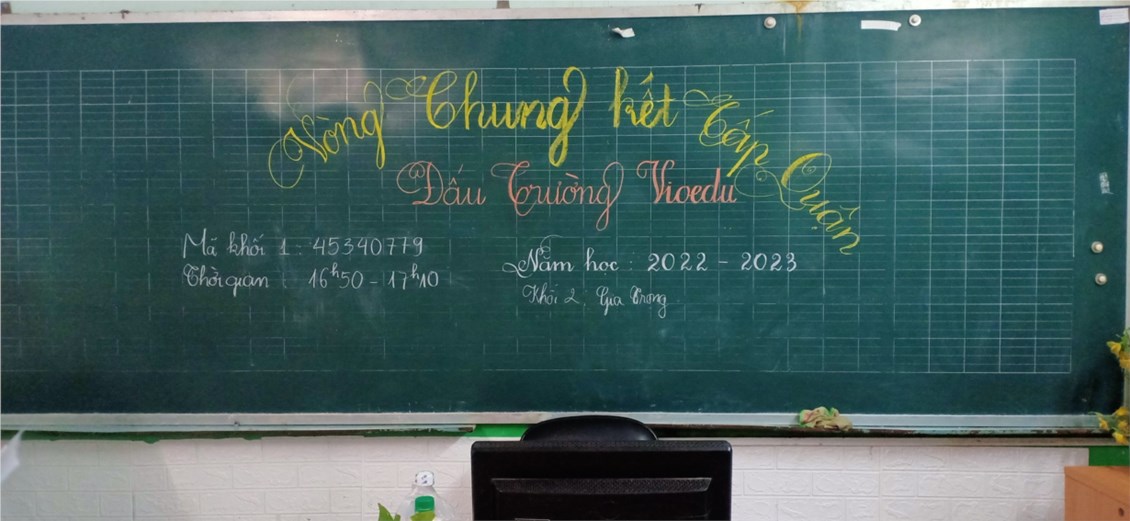 Vòng Chung kết Cấp Quận
Đấu Trường Vioedu
Mã khối 1: 45340779
Thời gian: 16h50 - 17h10
Năm học: 2022 - 2023
Khối 2: